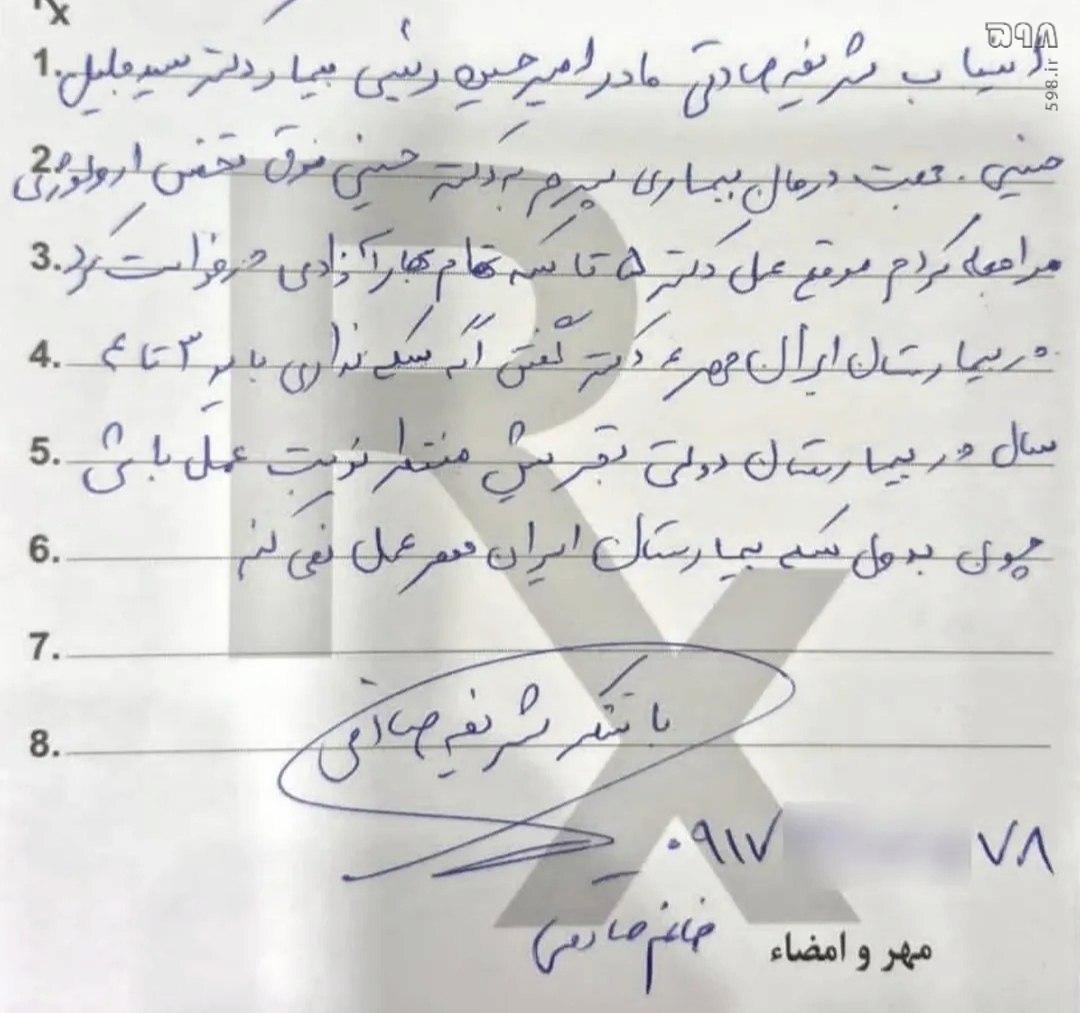 Rx
598
598.ir
1. اینجانب شریفه صادقی مادر امیرحسین رئیسی بیمار دکتر سید جلیل
2. حسینی. جهت درمان بیماری پسرم به دکتر حسینی فوق تخصص ارولوژی
3. مراجعه کردم موقع عمل دکتر ۵ تا سکه تمام بهار آزادی درخواست کرد
4. در بیمارستان ایران مهر دکتر گفتن اگه سکه نداری باید ۳ تا ۴
5. سال در بیمارستان دولتی تجریش منتظر نوبت عمل باشی
6. چون بدون سکه بیمارستان ایران مهر عمل نمی کنم
7.
8. با تشکر شریفه صادقی
۰۹۱۷ ۷۸
خانم صادقی
مهر و امضاء